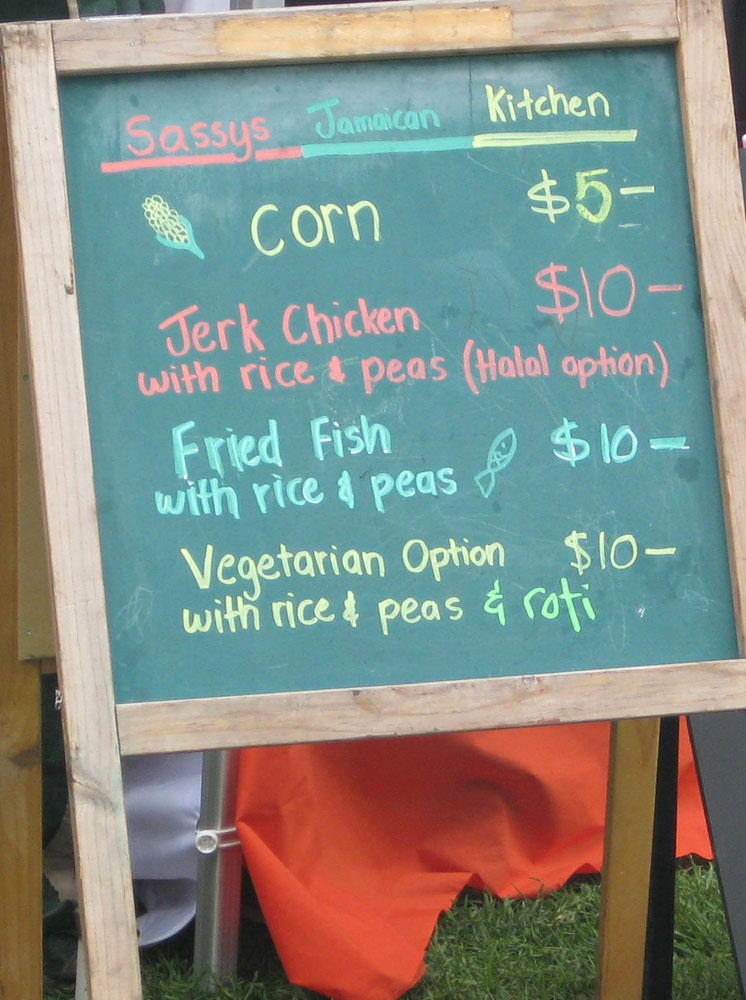 Sassys Jamaican Kitchen
Corn $5-
Jerk Chicken $10-
with rice & peas (Halal option)
Fried Fish $10-
with rice & peas
Vegetarian Option $10-
with rice & peas & roti